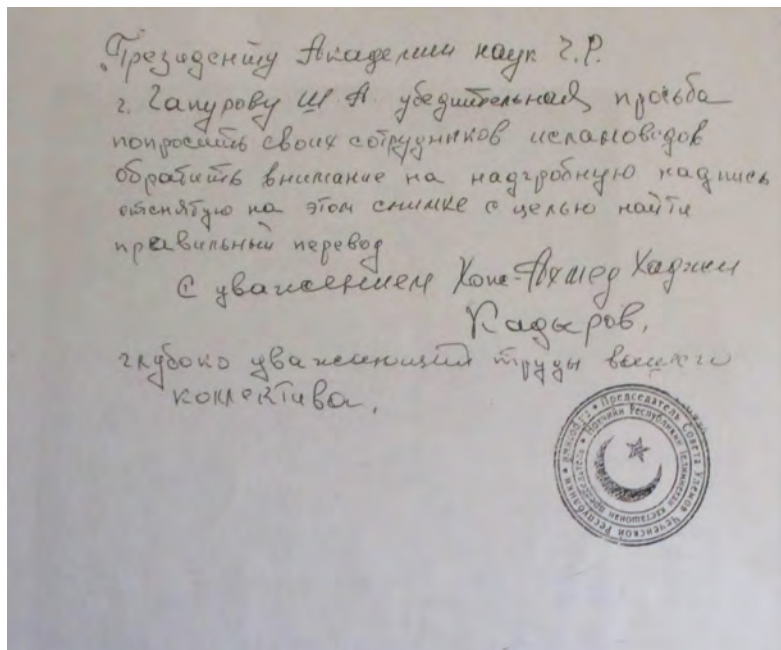 Президенту Академии наук Ч.Р.
г. Гапурову Ш. А. убедительная просьба
попросить своих сотрудников исламоведов
обратить внимание на надгробную надпись
отснятую на этом снимке с целью найти
правильный перевод
С уважением Хож-Ахмед Хаджи
Кадыров,
глубоко уважающий труды вашего
коллектива.
Председатель Совета Улемов Чеченской Республики
Нохчийн Республикин